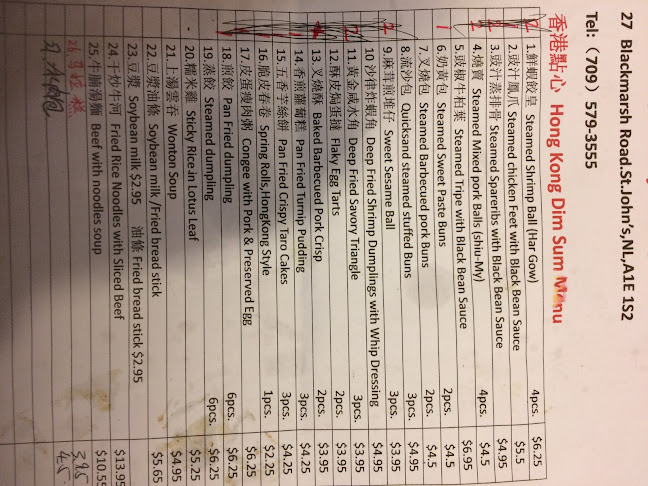 27 Blackmarsh Road.St.John's,NL,A1E 1S2
Tel: (709) 579-3555
香港點心 Hong Kong Dim Sum Menu
1.鮮蝦餃皇 Steamed Shrimp Ball (Har Gow) 4pcs. $6.25
2.豉汁鳳爪 Steamed chicken Feet with Black Bean Sauce $5.5
3.豉汁蒸排骨 Steamed Spareribs with Black Bean Sauce $4.95
4.燒賣 Steamed Mixed pork Balls (shiu-My) 4pcs. $4.5
5.豉椒牛柏葉 Steamed Tripe with Black Bean Sauce $6.95
6.奶黃包 Steamed Sweet Paste Buns 2pcs. $4.5
7.叉燒包 Steamed Barbecued pork Buns 2pcs. $4.5
8.流沙包 Quicksand steamed stuffed Buns 3pcs. $4.95
9.麻茸煎堆仔 Sweet Sesame Ball 3pcs. $3.95
10 沙律炸蝦角 Deep Fried Shrimp Dumplings with Whip Dressing $4.95
11.黃金咸水角 Deep Fried Savory Triangle 3pcs. $3.95
12.酥皮焗蛋撻 Flaky Egg Tarts 2pcs. $3.95
13.叉燒酥 Baked Barbecued Pork Crisp 2pcs. $3.95
14.香煎蘿蔔糕 Pan Fried Turnip Pudding 3pcs. $4.25
15.五香芋絲餅 Pan Fried Crispy Taro Cakes 3pcs. $4.25
16.脆皮春卷 Spring Rolls,HongKong Style 1pcs. $2.25
17.皮蛋瘦肉粥 Congee with Pork & Preserved Egg $6.25
18.煎餃 Pan Fried dumpling 6pcs. $6.25
19.蒸餃 Steamed dumpling 6pcs. $6.25
20.糯米雞 Sticky Rice in Lotus Leaf $5.25
21.上湯雲吞 Wonton Soup $4.95
22.豆漿油條 Soybean milk /Fried bread stick $5.65
23.豆漿 Soybean milk $2.95 油條 Fried bread stick $2.95
24.干炒牛河 Fried Rice Noodles with Sliced Beef $13.95
25.牛腩湯麵 Beef with noodles soup $10.55
26 馬拉糕 3.95
27. 4.5